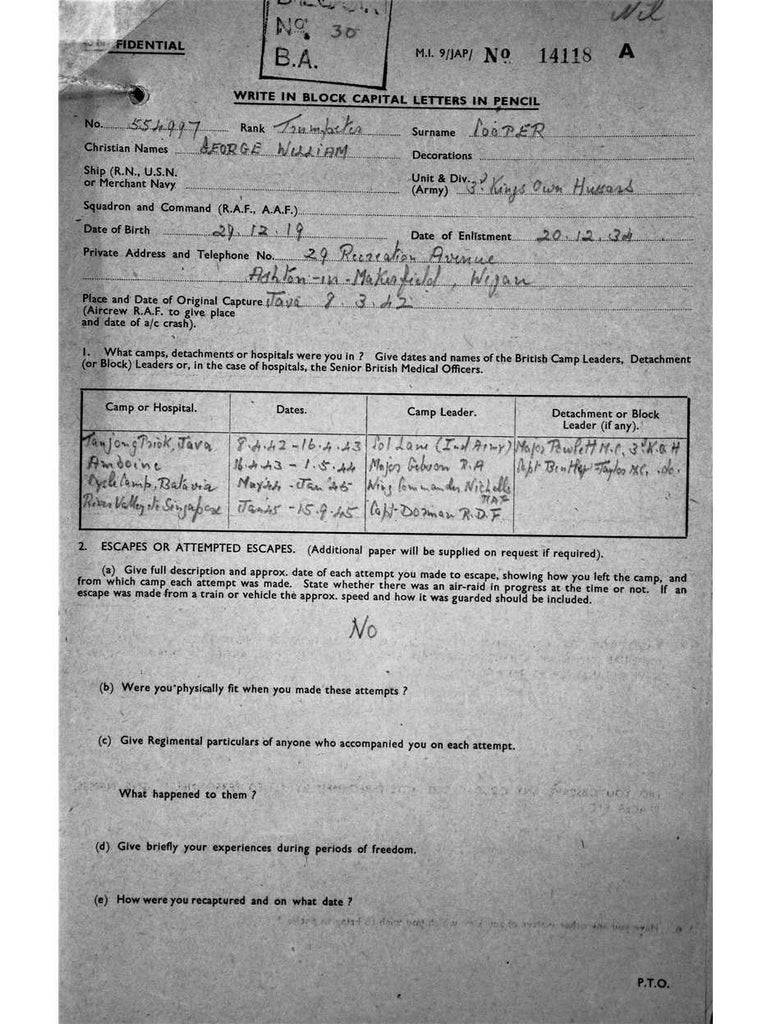 Nil
No. 30
B.A.
FIDENTIAL
M.I. 9/JAP/ No 14118 A
WRITE IN BLOCK CAPITAL LETTERS IN PENCIL
No. 554997 Rank Trumpeter Surname COOPER
Christian Names GEORGE WILLIAM Decorations
Ship (R.N., U.S.N. or Merchant Navy
Unit & Div. (Army) 3d Kings Own Hussars
Squadron and Command (R.A.F., A.A.F.)
Date of Birth 29.12.19 Date of Enlistment 20.12.34
Private Address and Telephone No. 29 Recreation Avenue
Ashton-in-Makerfield, Wigan
Place and Date of Original Capture Java 8.3.42
(Aircrew R.A.F. to give place
and date of a/c crash).
1. What camps, detachments or hospitals were you in ? Give dates and names of the British Camp Leaders, Detachment
(or Block) Leaders or, in the case of hospitals, the Senior British Medical Officers.
Camp or Hospital. Dates. Camp Leader. Detachment or Block Leader (if any).
Tanjong Priok, Java 8.4.42 - 16.4.43 Col Lane (Ind Army) Major Powlett M.C. 3d K.O H
Amboine 16.4.43 - 1.5.44 Major Gibson R.A Capt Bentley Taylor M.C. do.
Cycle Camp, Batavia May 44 - Jan '45 Wing Commander Nicholls RAF
River Valley Rd Singapore Jan 45 - 15.9.45 Capt Dorman R.D.F
2. ESCAPES OR ATTEMPTED ESCAPES. (Additional paper will be supplied on request if required).
(a) Give full description and approx. date of each attempt you made to escape, showing how you left the camp, and
from which camp each attempt was made. State whether there was an air-raid in progress at the time or not. If an
escape was made from a train or vehicle the approx. speed and how it was guarded should be included.
No
(b) Were you physically fit when you made these attempts ?
(c) Give Regimental particulars of anyone who accompanied you on each attempt.
What happened to them ?
(d) Give briefly your experiences during periods of freedom.
(e) How were you recaptured and on what date ?
P.T.O.